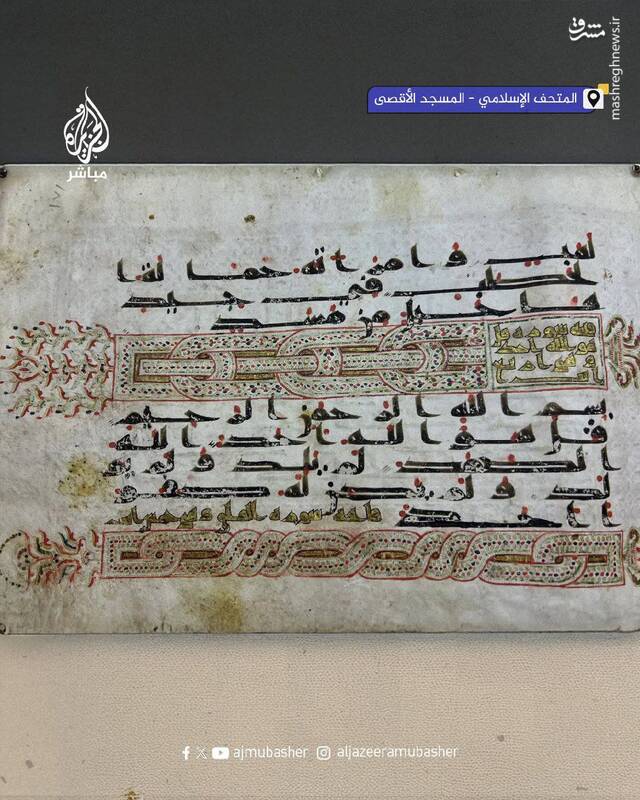 مشرق
mashreghnews.ir
المتحف الإسلامي - المسجد الأقصى
الجزيرة
مباشر
لهب و امراته حمالة ا
لحطب في جيد
ها حبل من مسد
بسم الله الرحمن الرحيم
قل هو الله احد الله
الصمد لم يلد و لم يو
لد و لم يكن له كفو
ا احد
ajmubasher
aljazeeramubasher